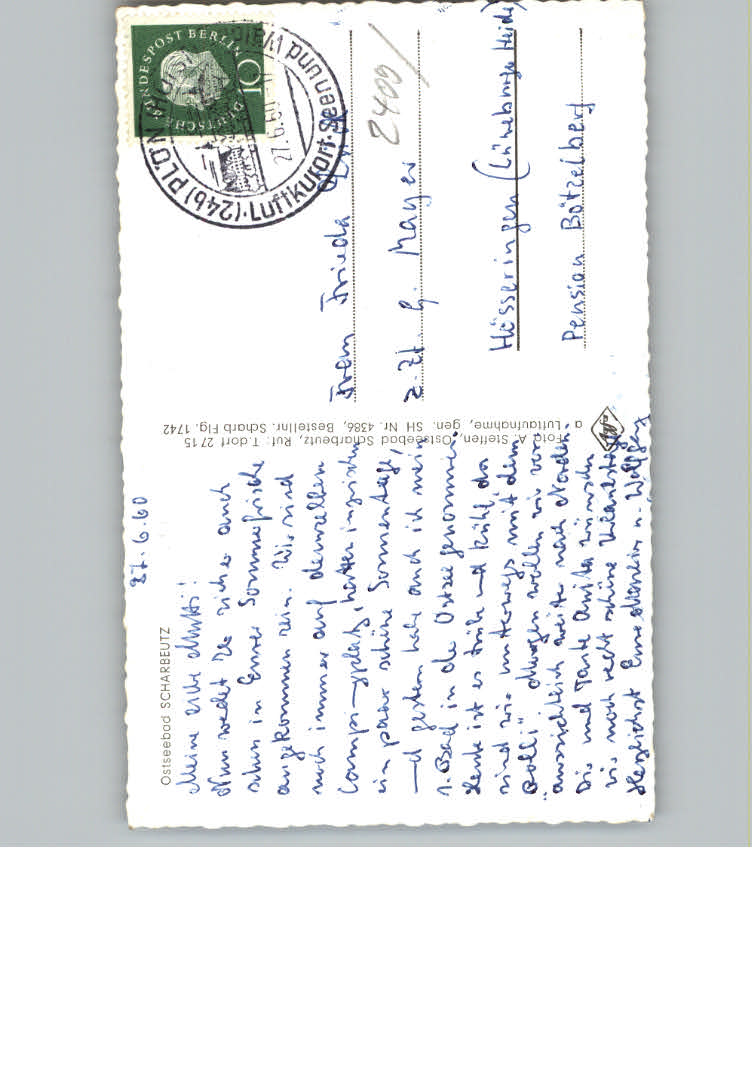 Ostseebad SCHARBEUTZ
27.6.60
Meine liebe Mutti!
Nun werdet Ihr sicher auch
schon in Eurer Sommerfrische
angekommen sein. Wir sind
noch immer auf demselben
Campingplatz, hatten inzwischen
ein paar schöne Sonnentage,
und gestern habe auch ich mein
1. Bad in die Ostsee genommen.
Heute ist es trübe und kühl, da
sind wir unterwegs mit dem
"Bolli". Morgen wollen wir vor-
aussichtlich weiter nach Norden.
Dir und Tante Anita wünschen
wir noch recht schöne Urlaubstage
Herzlichst Eure u. Wolfgang
Foto: A. Steffen, Ostseebad Scharbeutz, Ruf: T.dorf 27 15
a Luftaufnahme, gen. SH Nr. 4386, Bestellnr. Scharb Flg. 1742
Agfa
DEUTSCHE BUNDESPOST BERLIN
10
(24b) PLÖN
Luftkurort
27.6.60
2409/
Frau Frieda
z. Zt. G. Mayer
Hösseringen (Lüneburger Heide)
Pension Bötzelberg